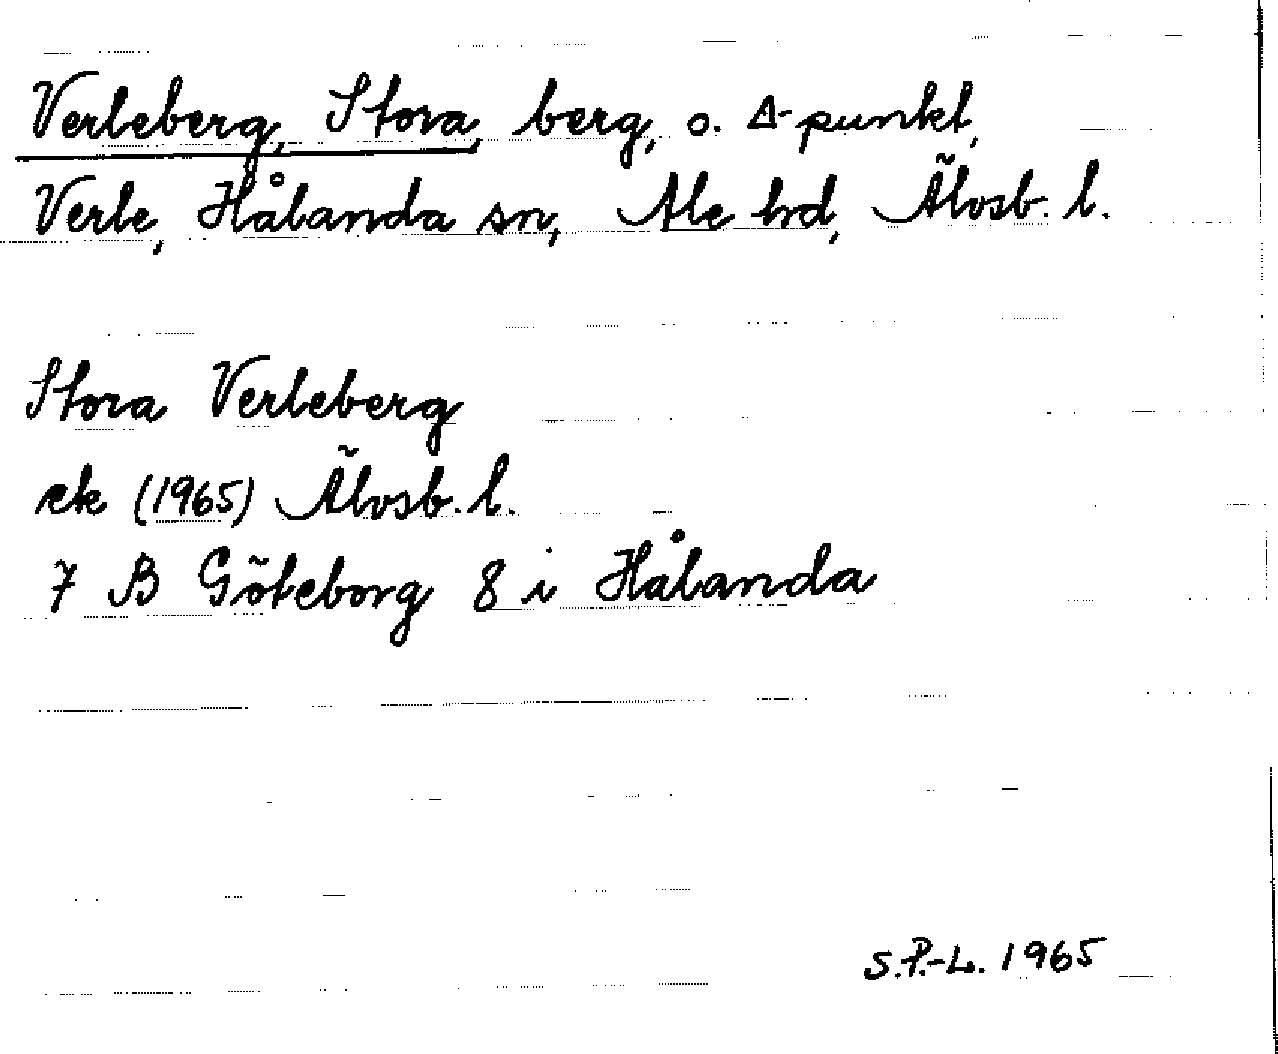 Verleberg, Stora, berg, o. Δ-punkt,
Verle, Hålanda sn, Ale hd, Älvsb. l.
Stora Verleberg
ek (1965) Älvsb. l.
7 B Göteborg 8 i Hålanda
S.P.-L. 1965